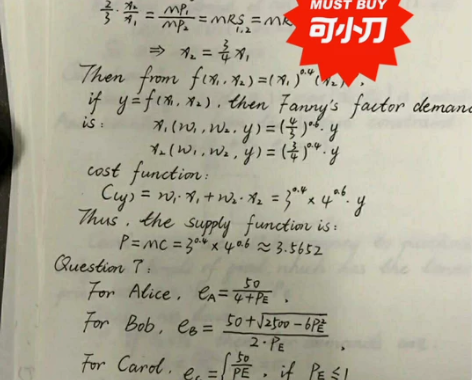 MUST BUY
可小刀
2/3 · x₂/x₁ = MP₁/MP₂ = MRS₁,₂ = MR
⇒ x₂ = 3/4 x₁
Then from f(x₁, x₂) = (x₁)^0.4 (x₂)
if y = f(x₁, x₂), then Fanny's factor deman
is: x₁(w₁, w₂, y) = (4/3)^0.6 · y
x₂(w₁, w₂, y) = (3/4)^0.4 · y
cost function:
C(y) = w₁·x₁ + w₂·x₂ = 3^0.4 × 4^0.6 · y
Thus, the supply function is:
P = MC = 3^0.4 × 4^0.6 ≈ 3.5652
Question 7:
For Alice, e_A = 50/(4+P_E) .
For Bob, e_B = (50+√(2500-6P_E²))/(2·P_E)
For Carol, e_c = { 50/P_E, if P_E ≤ 1